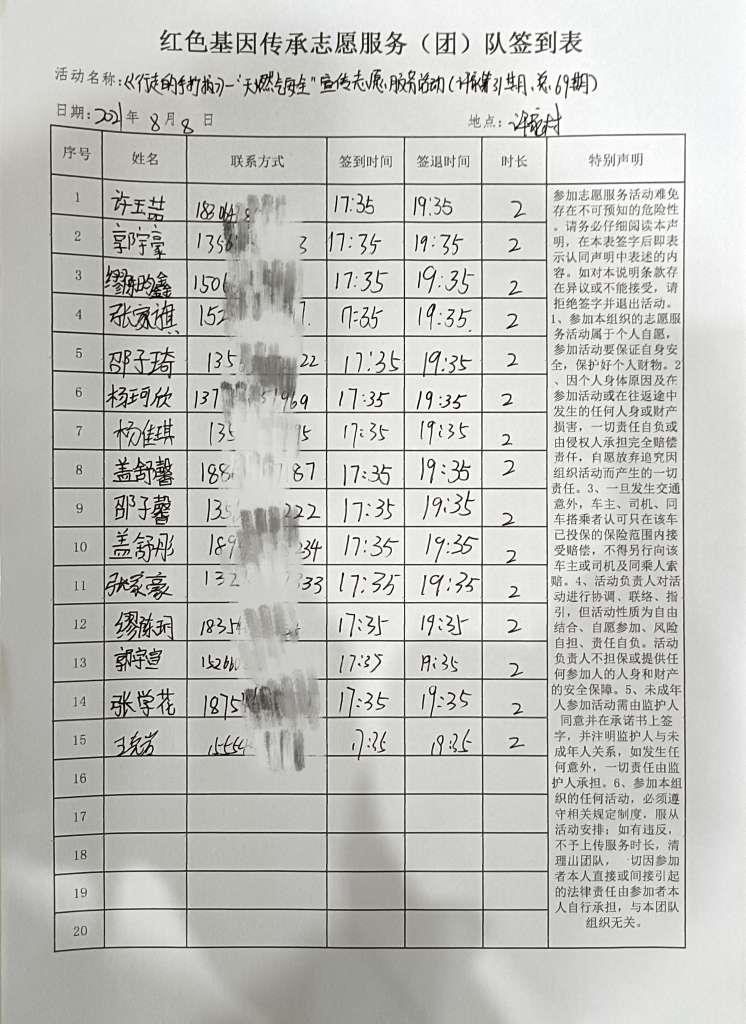 红色基因传承志愿服务（团）队签到表
活动名称:《行走的手抄报》—"天燃气安全"宣传志愿服务活动(第31期、总69期)
日期: 2021年 8 月 8 日 地点: 许家村
序号 姓名 联系方式 签到时间 签退时间 时长 特别声明
1 许玉喆 17:35 19:35 2
2 郭宇豪 135 3 17:35 19:35 2
3 缪陈昀鑫 150 17:35 19:35 2
4 张家祺 152 7. 17:35 19:35 2
5 邵子琦 135 22 17:35 19:35 2
6 杨珂欣 137 969 17:35 19:35 2
7 杨佳琪 135 95 17:35 19:35 2
8 盖舒馨 188 87 17:35 19:35 2
9 邵子馨 135 222 17:35 19:35 2
10 盖舒彤 189 234 17:35 19:35 2
11 张家豪 132 333 17:35 19:35 2
12 缪陈玥 1835 17:35 19:35 2
13 郭宇宣 152 17:35 19:35 2
14 张学花 1875 17:35 19:35 2
15 15554 17:35 19:35 2
16
17
18
19
20
参加志愿服务活动难免
存在不可预知的危险性
。请务必仔细阅读本声
明，在本表签字后即表
示认同声明中表述的内
容。如对本说明条款存
在异议或不能接受，请
拒绝签字并退出活动。
1、参加本组织的志愿服
务活动属于个人自愿，
参加活动要保证自身安
全，保护好个人财物。2
、因个人身体原因及在
参加活动或在往返途中
发生的任何人身或财产
损害，一切责任自负或
由侵权人承担完全赔偿
责任，自愿放弃追究因
组织活动而产生的一切
责任。3、一旦发生交通
意外，车主、司机、同
车搭乘者认可只在该车
已投保的保险范围内接
受赔偿，不得另行向该
车主或司机及同乘人索
赔。4、活动负责人对活
动进行协调、联络、指
引，但活动性质为自由
结合、自愿参加、风险
自担、责任自负。活动
负责人不担保或提供任
何参加人的人身和财产
的安全保障。5、未成年
人参加活动需由监护人
同意并在承诺书上签
字，并注明监护人与未
成年人关系，如发生任
何意外，一切责任由监
护人承担。6、参加本组
织的任何活动，必须遵
守相关规定制度，服从
活动安排；如有违反，
不予上传服务时长，清
理出团队，一切因参加
者本人直接或间接引起
的法律责任由参加者本
人自行承担，与本团队
组织无关。